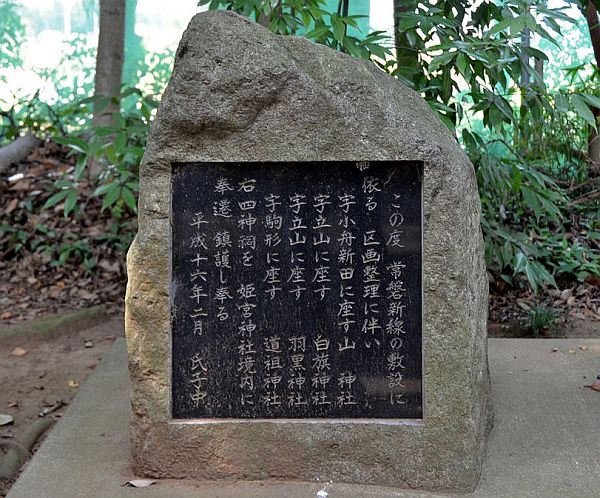 この度 常磐新線の敷設に
依る 区画整理に伴い
字小舟新田に座す山 神社
字立山に座す 白旗神社
字立山に座す 羽黒神社
字駒形に座す 道祖神社
右四神祠を 姫宮神社境内に
奉遷 鎮護し奉る
平成十六年二月 氏子中